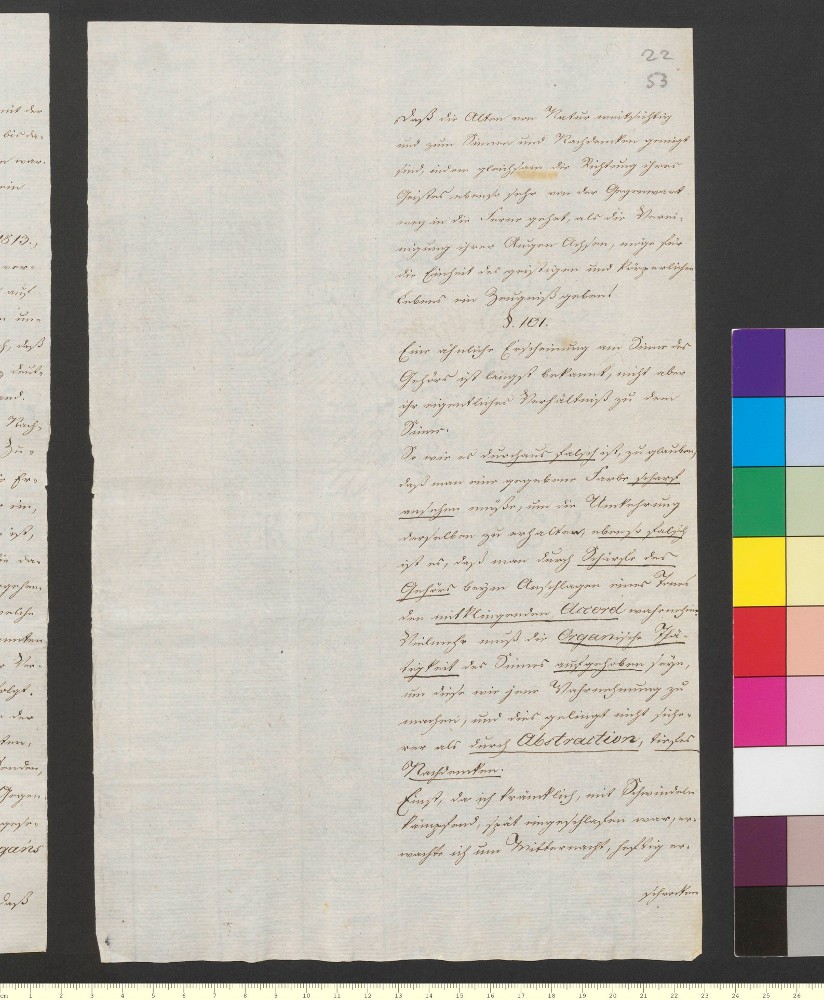 22
53
Daß die Alten von Natur weitsichtig
und zum Sinnen und Nachdencken geneigt
sind, indem gleichsam die Richtung ihres
Geistes ebenso sehr von der Gegenwart
weg in die Ferne gehet, als die Verei-
nigung ihrer Augen Achsen, möge für
die Einheit des geistigen und körperlichen
Lebens ein Zeugniß geben!
§. 101.
Eine ähnliche Erscheinung am Sinne des
Gehörs ist längst bekannt, nicht aber
ihr eigentliches Verhältniß zu dem
Sinne.
So wie es durchaus falsch ist, zu glauben,
daß man eine gegebene Farbe scharf
ansehen müße, um die Umkehrung
derselben zu erhalten, ebenso falsch
ist es, daß man durch Schärfe des
Gehörs beym Anschlagen eines Tones
den mitklingenden Accord wahrnehme.
Vielmehr muß die Organische Thä-
tigkeit des Sinnes aufgehoben seyn,
um diese wie jene Wahrnehmung zu
machen, und dies gelingt nicht siche-
rer als durch Abstraction, tiefes
Nachdencken.
Einst, da ich kräncklich, mit Schwindeln
kämpfend, spät eingeschlafen war, er-
wachte ich um Mitternacht, heftig er-
schrocken
mit der
bis da-
war.
ein
1813.,
ver-
auf
un-
daß
deut-
Nach-
Zu-
Er-
ist,
da-
welche
Ver-
der
Gegen
gans
daß